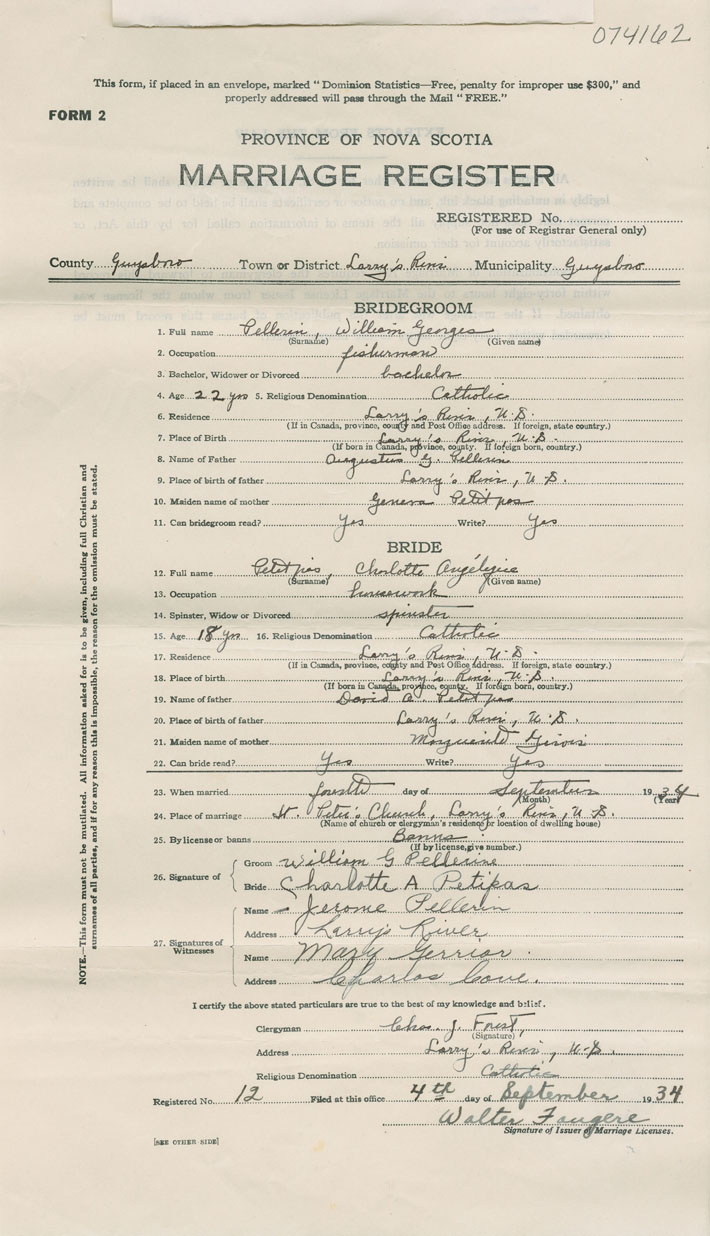 074162
This form, if placed in an envelope, marked "Dominion Statistics—Free, penalty for improper use $300," and
properly addressed will pass through the Mail "FREE."
FORM 2
PROVINCE OF NOVA SCOTIA
MARRIAGE REGISTER
REGISTERED No.
(For use of Registrar General only)
County Guysboro Town or District Larry's River Municipality Guysboro
BRIDEGROOM
1. Full name Pellerin, William Georges
(Surname) (Given name)
2. Occupation fisherman
3. Bachelor, Widower or Divorced bachelor
4. Age 22 yrs 5. Religious Denomination Catholic
6. Residence Larry's River, N.S.
(If in Canada, province, county and Post Office address. If foreign, state country.)
7. Place of Birth Larry's River, N.S.
(If born in Canada, province, county. If foreign born, country.)
8. Name of Father Augustus G. Pellerin
9. Place of birth of father Larry's River, N.S.
10. Maiden name of mother Geneva Petitpas
11. Can bridegroom read? Yes Write? Yes
BRIDE
12. Full name Petitpas, Charlotte Angélique
(Surname) (Given name)
13. Occupation housework
14. Spinster, Widow or Divorced spinster
15. Age 18 yrs 16. Religious Denomination Catholic
17. Residence Larry's River, N.S.
(If in Canada, province, county and Post Office address. If foreign, state country.)
18. Place of birth Larry's River, N.S.
(If born in Canada, province, county. If foreign born, country.)
19. Name of father David A. Petitpas
20. Place of birth of father Larry's River, N.S.
21. Maiden name of mother Marguerite
22. Can bride read? Yes Write? Yes
23. When married fourth day of September 1934
(Month) (Year)
24. Place of marriage St. Peter's Church, Larry's River, N.S.
(Name of church or clergyman's residence or location of dwelling house)
25. By license or banns Banns
(If by license, give number.)
26. Signature of
Groom William G Pellerine
Bride Charlotte A Petipas
27. Signatures of Witnesses
Name Jerome Pellerin
Address Larrys River
Name Mary Gerrior
Address Charlos Cove.
I certify the above stated particulars are true to the best of my knowledge and belief.
Clergyman Chas. J. Forest,
(Signature)
Address Larry's River, N.S.
Religious Denomination Catholic
Registered No. 12 Filed at this office 4th day of September 1934
Walter Faugere
Signature of Issuer of Marriage Licenses.
[SEE OTHER SIDE]
NOTE.—This form must not be mutilated. All information asked for is to be given, including full Christian and
surnames of all parties, and if for any reason this is impossible, the reason for the omission must be stated.